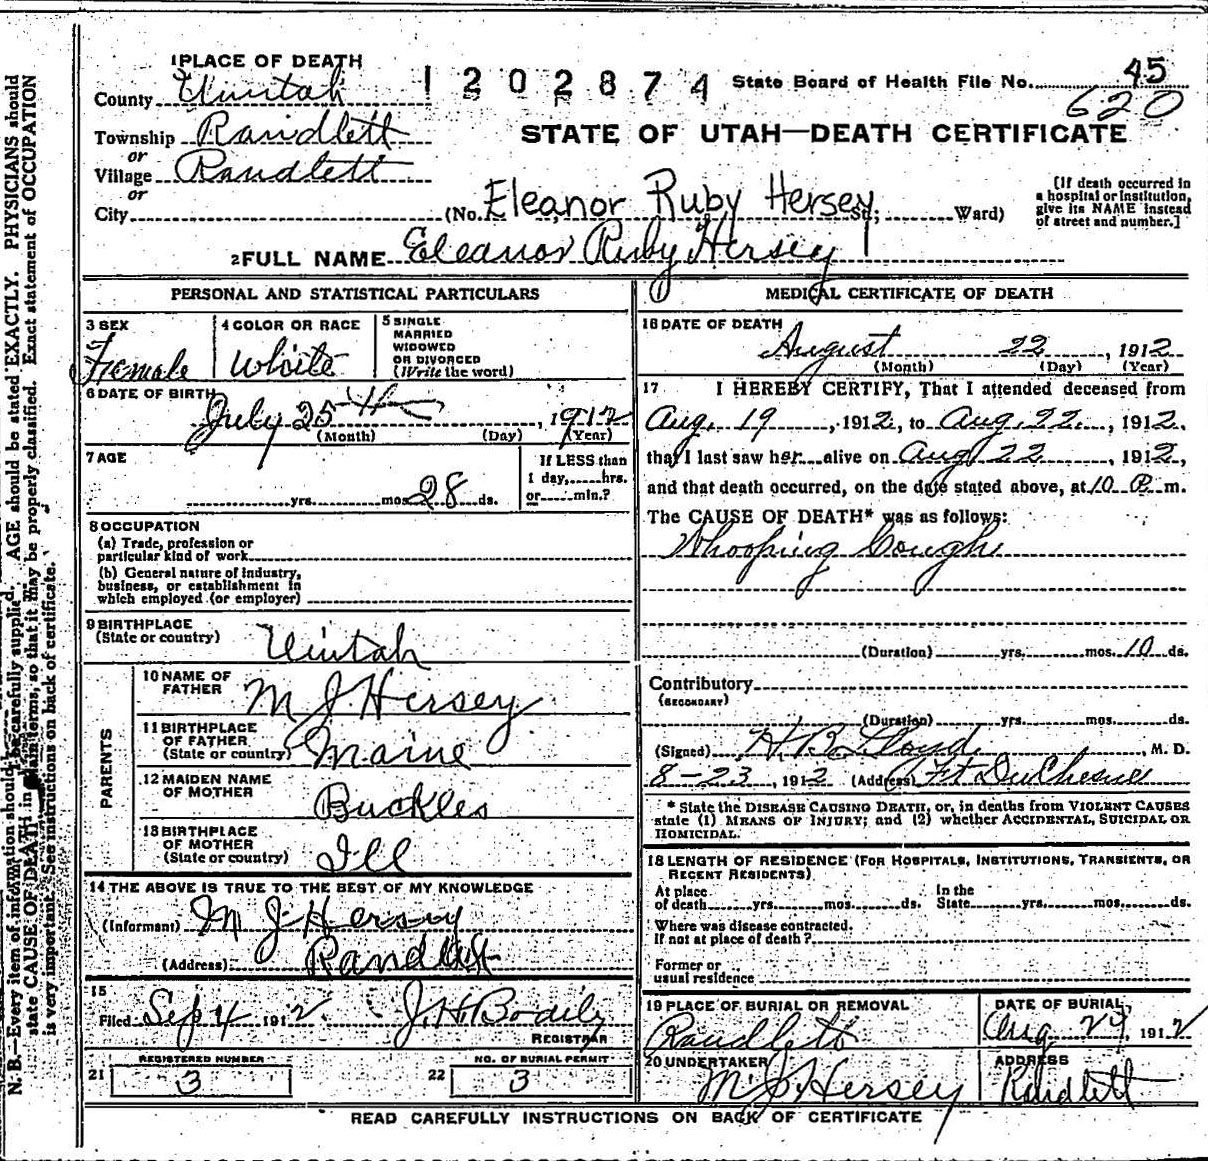 1 PLACE OF DEATH
1202874
State Board of Health File No. 45
620
County Uintah
Township Randlett
or
Village Randlett
or
City
STATE OF UTAH—DEATH CERTIFICATE
(No. Eleanor Ruby Hersey St; Ward)
[If death occurred in a hospital or institution, give its NAME instead of street and number.]
2 FULL NAME Eleanor Ruby Hersey
PERSONAL AND STATISTICAL PARTICULARS
3 SEX
Female
4 COLOR OR RACE
White
5 SINGLE
MARRIED
WIDOWED
OR DIVORCED
(Write the word)
6 DATE OF BIRTH
July 25th, 1912
(Month) (Day) (Year)
7 AGE
yrs. mos. 28 ds.
If LESS than
1 day, hrs.
or min.?
8 OCCUPATION
(a) Trade, profession or
particular kind of work
(b) General nature of industry,
business, or establishment in
which employed (or employer)
9 BIRTHPLACE
(State or country) Uintah
PARENTS
10 NAME OF
FATHER M J Hersey
11 BIRTHPLACE
OF FATHER
(State or country) Maine
12 MAIDEN NAME
OF MOTHER Buckles
13 BIRTHPLACE
OF MOTHER
(State or country) Ill
14 THE ABOVE IS TRUE TO THE BEST OF MY KNOWLEDGE
(Informant) M J Hersey
(Address) Randlett
15
Filed Sep 4 1912 J. H. Bodily
REGISTRAR
REGISTERED NUMBER
21 3
NO. OF BURIAL PERMIT
22 3
MEDICAL CERTIFICATE OF DEATH
16 DATE OF DEATH
August 22, 1912
(Month) (Day) (Year)
17 I HEREBY CERTIFY, That I attended deceased from
Aug. 19, 1912, to Aug. 22, 1912,
that I last saw her alive on Aug 22, 1912,
and that death occurred, on the date stated above, at 10 P. m.
The CAUSE OF DEATH* was as follows:
Whooping Cough
(Duration) yrs. mos. 10 ds.
Contributory
(SECONDARY)
(Duration) yrs. mos. ds.
(Signed) H. B. Lloyd, M. D.
8-23, 1912 (Address) Ft DuChesne
* State the DISEASE CAUSING DEATH, or, in deaths from VIOLENT CAUSES
state (1) MEANS OF INJURY; and (2) whether ACCIDENTAL, SUICIDAL OR
HOMICIDAL.
18 LENGTH OF RESIDENCE (FOR HOSPITALS, INSTITUTIONS, TRANSIENTS, OR
RECENT RESIDENTS)
At place
of death yrs. mos. ds.
In the
State yrs. mos. ds.
Where was disease contracted.
If not at place of death?
Former or
usual residence
19 PLACE OF BURIAL OR REMOVAL
Randlett
DATE OF BURIAL
Aug 24, 1912
20 UNDERTAKER
M. J. Hersey
ADDRESS
Randlett
READ CAREFULLY INSTRUCTIONS ON BACK OF CERTIFICATE
N. B.—Every item of information should be carefully supplied. AGE should be stated EXACTLY. PHYSICIANS should
state CAUSE OF DEATH in plain terms, so that it may be properly classified. Exact statement of OCCUPATION
is very important. See instructions on back of certificate.